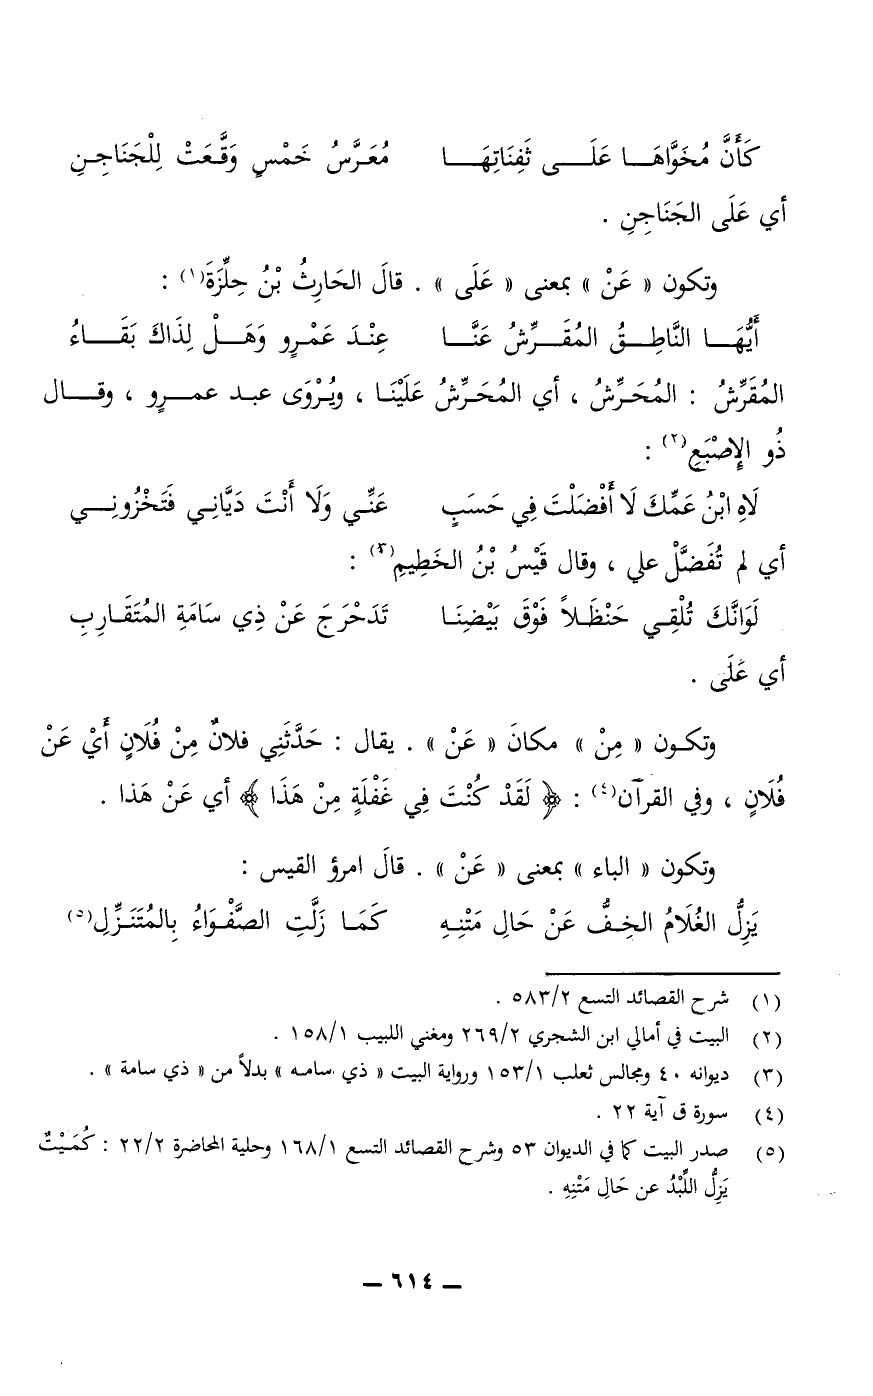 كَأَنَّ مُخَوَّاهَـــا عَلَـــى ثَفِنَاتِهَـــا مُعَرَّسُ خَمْسٍ وَقَّعَتْ لِلْجَنَاجِنِ
أي عَلَى الجَنَاجِنِ .
وتكون « عَنْ » بمعنى « عَلَى » . قالَ الحَارِثُ بْنُ حِلِّزَةَ(١) :
أَيُّهَـــا النَّاطِـــقُ المُقَـــرِّشُ عَنَّـــا عِنْـدَ عَمْـرٍو وَهَـــلْ لِذَاكَ بَقَـــاءُ
المُقَرِّشُ : المُحَرِّشُ ، أي المُحَرِّشُ عَلَيْنَـا ، ويُرْوَى عبـد عمـرو ، وقـال
ذُو الإِصْبَعِ(٢) :
لَاهِ ابْنُ عَمِّكَ لَا أَفْضَلْتَ فِي حَسَبٍ عَنِّـي وَلَا أَنْتَ دَيَّانِـي فَتَخْزُونِـــي
أي لم تُفَضَّلْ علي ، وقال قَيْسُ بْنُ الخَطِيمِ(٣) :
لَوَانَّكَ تُلْقِـي حَنْظَـلاً فَوْقَ بَيْضِنَـا تَدَحْرَجَ عَنْ ذِي سَامَةِ المُتَقَـارِبِ
أي عَلَى .
وتكـون « مِنْ » مكانَ « عَنْ » . يقال : حَدَّثَنِي فلانٌ مِنْ فُلَانٍ أَيْ عَنْ
فُلَانٍ ، وفي القرآن(٤) : ﴿ لَقَدْ كُنْتَ فِي غَفْلَةٍ مِنْ هَذَا ﴾ أي عَنْ هَذا .
وتكون « الباء » بمعنى « عَنْ » . قالَ امرؤ القيس :
يَزِلُّ الغُلَامُ الخِـفُّ عَنْ حَالِ مَتْنِـهِ كَمَـا زَلَّتِ الصَّفْـوَاءُ بِالمُتَنَـزِّلِ(٥)
(١) شرح القصائد التسع ٥٨٣/٢ .
(٢) البيت في أمالي ابن الشجري ٢٦٩/٢ ومغني اللبيب ١٥٨/١ .
(٣) ديوانه ٤٠ ومجالس ثعلب ١٥٣/١ ورواية البيت « ذي سامـه » بدلاً من « ذي سامة » .
(٤) سورة ق آية ٢٢ .
(٥) صدر البيت كما في الديوان ٥٣ وشرح القصائد التسع ١٦٨/١ وحلية المحاضرة ٢٢/٢ : كُمَيْتٌ
يَزِلُّ اللِّبْدُ عن حَالِ مَتْنِهِ .
— ٦١٤ —